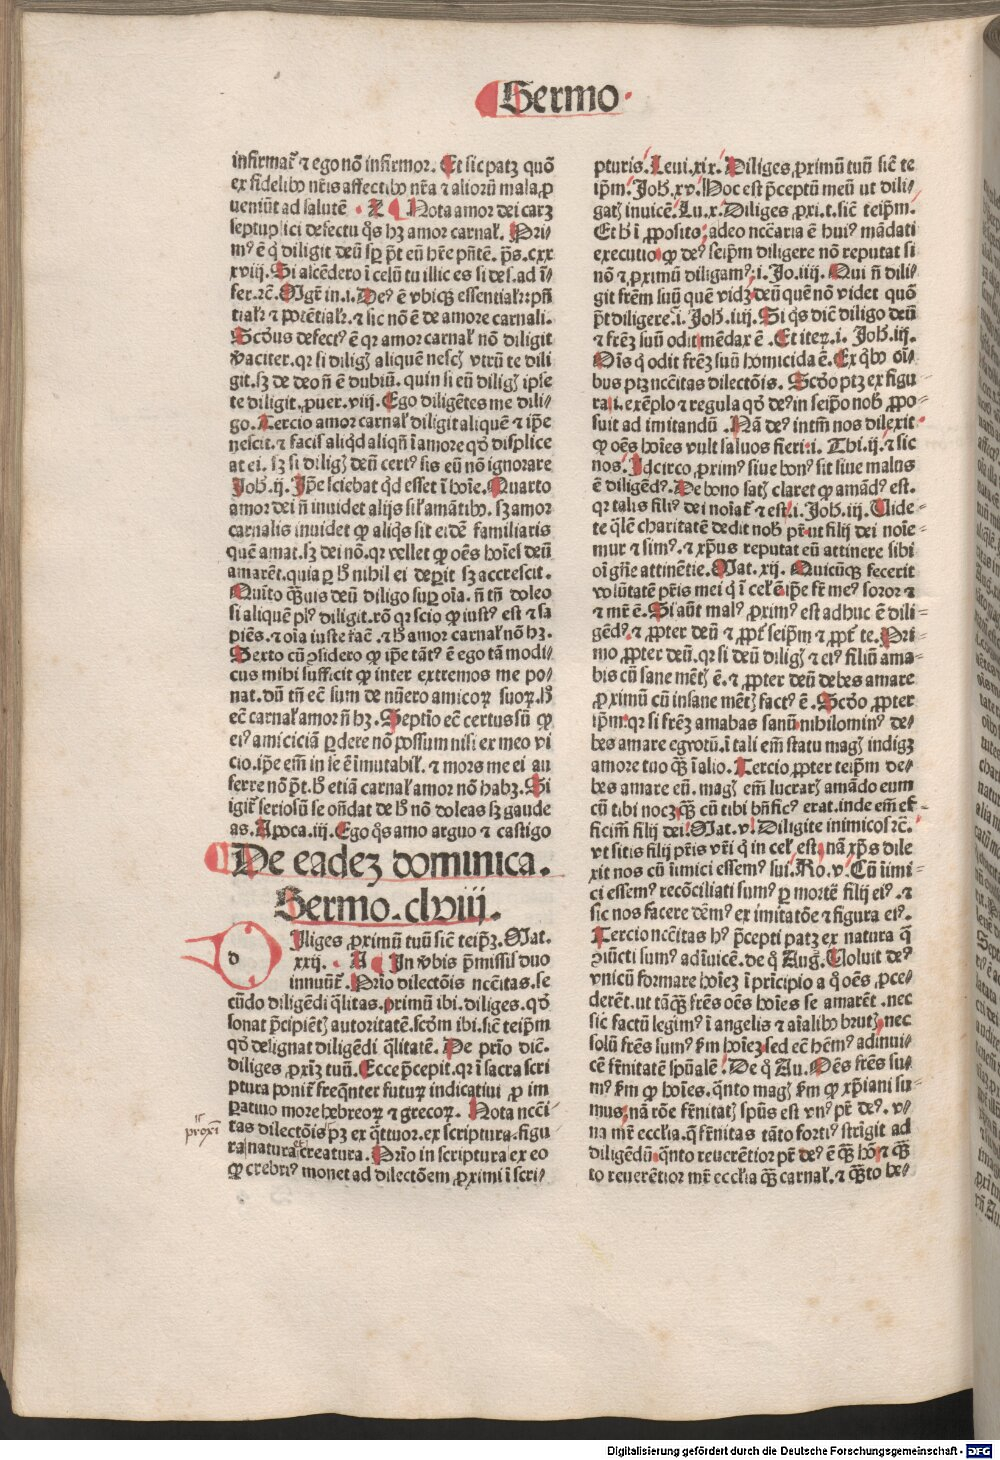 Sermo
infirmat᷒ ⁊ ego nō infirmor. Et sic patꝫ quō
ex fidelibꝰ nr̄is affectibꝰ nr̄a ⁊ alioꝝ mala ꝓ
ueniūt ad salutē. Z Nota amor dei carꝫ
septuplici defectu qͥs hꝫ amor carnaƚ. Pri
mꝰ ē ꝙ diligit deū sꝑ p̄t eū hr̄e p̄ntē. ps̄. cxx
xviij. Si ascēdero ī celū tu illic es si des. ad ī/
fer. ⁊c̄. Mgr̄ in .i. Deꝰ ē vbiqꝫ essentialiƚ: p̄n
tialiƚ ⁊ potētialiƚ. ⁊ sic nō ē de amore carnali.
Scd̄us defectꝰ ē qr amor carnaƚ nō diligit
v̄aciter. qr si diligꝫ aliquē nescꝫ vtrū te dili
git. sꝫ de deo n̄ ē dubiū. quin si eū diligꝫ ipse
te diligit. ꝓuer. viij. Ego diligētes me dili/
go. Tercio amor carnaƚ diligit aliquē ⁊ ip̄e
nescit. ⁊ facis aliqd aliqn̄ ī amore qd̄ displice
at ei. sꝫ si diligꝫ deū certꝰ sis eū nō ignorare
Joh̄. ij. Ip̄e sciebat qd̄ esset ī hoīe. Quarto
amor dei n̄ inuidet alijs siƚ amātibꝰ. sꝫ amor
carnalis inuidet ꝙ aliqͥs sit eidē familiaris
quē amat. sꝫ dei nō. qr vellet ꝙ oēs hoīes deū
amarēt. quia ꝑ h̄ nihil ei deꝑit sꝫ accrescit.
Quīto qͣuis deū diligo suꝑ oīa. n̄ tn̄ doleo
si aliquē plꝰ diligit. rō qr scio ꝙ iustꝰ est ⁊ sa
piēs. ⁊ oīa iuste fac̄. ⁊ h̄ amor carnaƚ nō hꝫ.
Sexto cū ↄsidero ꝙ ip̄e tātꝰ ē ⁊ ego tā modi/
cus mihi sufficit ꝙ inter extremos me po/
nat. dū tn̄ ec̄ sum de nūero amicoꝝ suoꝝ. h̄
ec̄ carnaƚ amor n̄ hꝫ. Septīo ec̄ certus sū ꝙ
eiꝰ amiciciā ꝑdere nō possum nisi ex meo vi
cio. ip̄e em̄ in se ē īmutabiƚ. ⁊ mors me ei au
ferre nō p̄t. h̄ etiā carnaƚ amor nō habꝫ. Si
igit᷒ seriosū se on̄dat de h̄ nō doleas sꝫ gaude
as. Apoca. iij. Ego qͦs amo arguo ⁊ castigo
De eadeꝫ dominica.
Sermo. clviij.
d
Iliges ꝓximū tuū sic̄ teip̄ꝫ. Mat.
xxij. A In v̄bis p̄missis duo
innuūt᷒. Prīo dilectōis ncc̄itas. se
cūdo diligēdi qͣlitas. primū ibi. diliges. qd̄
sonat p̄cipiētꝫ autoritatē. scd̄m ibi. sic̄ teip̄m
qd̄ designat diligēdi qͣlitatē. De prīo dic̄.
diliges ꝓxīꝫ tuū. Ecce p̄cepit. qr ī sacra scri
ptura ponit᷒ freqn̄ter futuꝝ indicatiui ꝓ im
ꝑatiuo more hebreoꝝ ⁊ grecoꝝ. Nota ncc̄i
tas dilectōis pꝫ ex qͣttuor. ex scriptura. figu
ra natura ⁊ creatura. Prīo in scriptura ex eo
ꝙ crebriꝰ monet ad dilectōem ꝓximi ī scri/
proxi
pturis. Leui. xix. Diliges ꝓximū tuū sic̄ te
ip̄m. Joh̄. xv. Hoc est p̄ceptū meū ut dili/
gatꝫ inuicē. Lu. x. Diliges ꝓxi. t. sic̄ teip̄m.
Et h̄ ī ꝓposito: adeo ncc̄aria ē huiꝰ mādati
executio ꝙ deꝰ seip̄m diligere nō reputat si
nō ⁊ ꝓximū diligamꝰ. i. Jo. iiij. Qui n̄ dili/
git frēm suū quē vidꝫ deū quē nō videt quō
p̄t diligere. i. Joh̄. iiij. Si qͥs dic̄ diligo deū
⁊ frēꝫ suū odit mēdax ē. Et iteꝝ. i. Joh̄. iij.
Oīs qͥ odit frēꝫ suū homicida ē. Ex qͥbꝰ oī/
bus ptꝫ ncc̄itas dilectōis. Scd̄o ptꝫ ex figu/
ra. i. exēplo ⁊ regula qd̄ deꝰ in seip̄o nob̄ ꝓpo/
suit ad imitandū. Nā deꝰ intm̄ nos dilexit
ꝙ oēs hoīes vult saluos fieri. i. Thi. ij. ⁊ sic
nos. Idcirco ꝓximꝰ siue bonꝰ sit siue malus
ē diligēdꝰ. De bono satꝫ claret ꝙ amādꝰ est.
qr talis filiꝰ dei noīat᷒ ⁊ est. i. Joh̄. iij. Vide/
te qͣlē charitatē dedit nob̄ pr̄. ut filij dei noīe/
mur ⁊ simꝰ. ⁊ xp̄us reputat eū attinere sibi
oī gn̄e attinētie. Mat. xij. Quicūqꝫ fecerit
volūtatē pr̄is mei qͥ ī celꝭ ē ip̄e fr̄ meꝰ soror ⁊
⁊ mr̄ ē. Si aūt malꝰ ꝓximꝰ est adhuc ē dili/
gēdꝰ. ⁊ ꝓpter deū ⁊ ꝓpt᷒ seip̄m ⁊ ꝓpt᷒ te. Pri/
mo ꝓpter deū. qr si deū diligꝫ ⁊ eiꝰ filiū ama/
bis cū sane mētꝫ ē. ⁊ ꝓpter deū debes amare
ꝓximū cū insane mētꝫ factꝰ ē. Scd̄o ꝓpter
ip̄m. qr si frēꝫ amabas sanū nihilominꝰ de/
bes amare egrotū. ī tali em̄ statu magꝫ indigꝫ
amore tuo qͣꝫ ī alio. Tercio ꝓpter teip̄m de/
bes amare eū. magꝫ em̄ lucrarꝫ amādo eum
cū tibi nocꝫ qͣꝫ cū tibi bn̄ficꝰ erat. inde em̄ ef/
ficim̄ filij dei. Mat. v. Diligite inimicos ⁊c̄.
vt sitis filij pr̄is vr̄i qͥ in celꝭ est. nā xp̄s dile
xit nos cū īimici essemꝰ sui. Ro. v. Cū īimi/
ci essemꝰ recōciliati sumꝰ ꝑ mortē filij eiꝰ. ⁊
sic nos facere dēmꝰ ex imitatōe ⁊ figura eiꝰ.
Tercio ncc̄itas hꝰ p̄cepti patꝫ ex natura qͣ
ↄiūcti sumꝰ adīuicē. de qͦ Auḡ. Voluit deꝰ
vnicū formare hoīeꝫ ī prīcipio a qͦ oēs ꝓce/
derēt. ut tāqͣꝫ frēs oēs hoīes se amarēt. nec
sic factū legimꝰ ī angelis ⁊ aīalibꝰ brutꝫ. nec
solū frēs sumꝰ ẜm hoīeꝫ sed ec̄ hēmꝰ adinui/
cē fr̄nitatē spūalē. De qͦ Au. Oēs frēs su/
mꝰ ẜm ꝙ hoīes. qͣnto magꝫ ẜm ꝙ xp̄iani su/
mus. nā rōe fr̄nitatꝫ spūs est vnꝰ pr̄ deꝰ. v/
na mr̄ eccƚia. qͣ fr̄nitas tāto fortiꝰ strīgit ad
diligēdū. qͣnto reuerētior pr̄ deꝰ ē qͣꝫ hō ⁊ qͣꝫ
to reuerētior mr̄ eccƚia qͣꝫ carnaƚ. ⁊ qͣꝫto be/
Digitalisierung gefördert durch die Deutsche Forschungsgemeinschaft - DFG